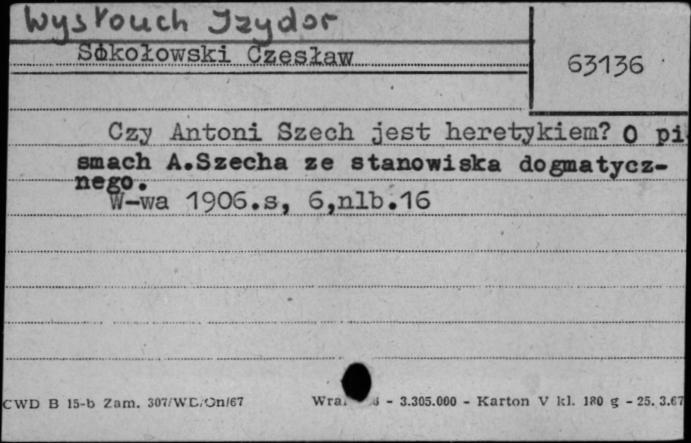 Wysłouch Izydor
Sokołowski Czesław
63136
Czy Antoni Szech jest heretykiem? O pi
smach A.Szecha ze stanowiska dogmatycz-
nego.
W-wa 1906.s, 6,nlb.16
CWD B 15-b Zam. 307/WD/On/67 - 3.305.000 - Karton V kl. 180 g - 25. 3.67